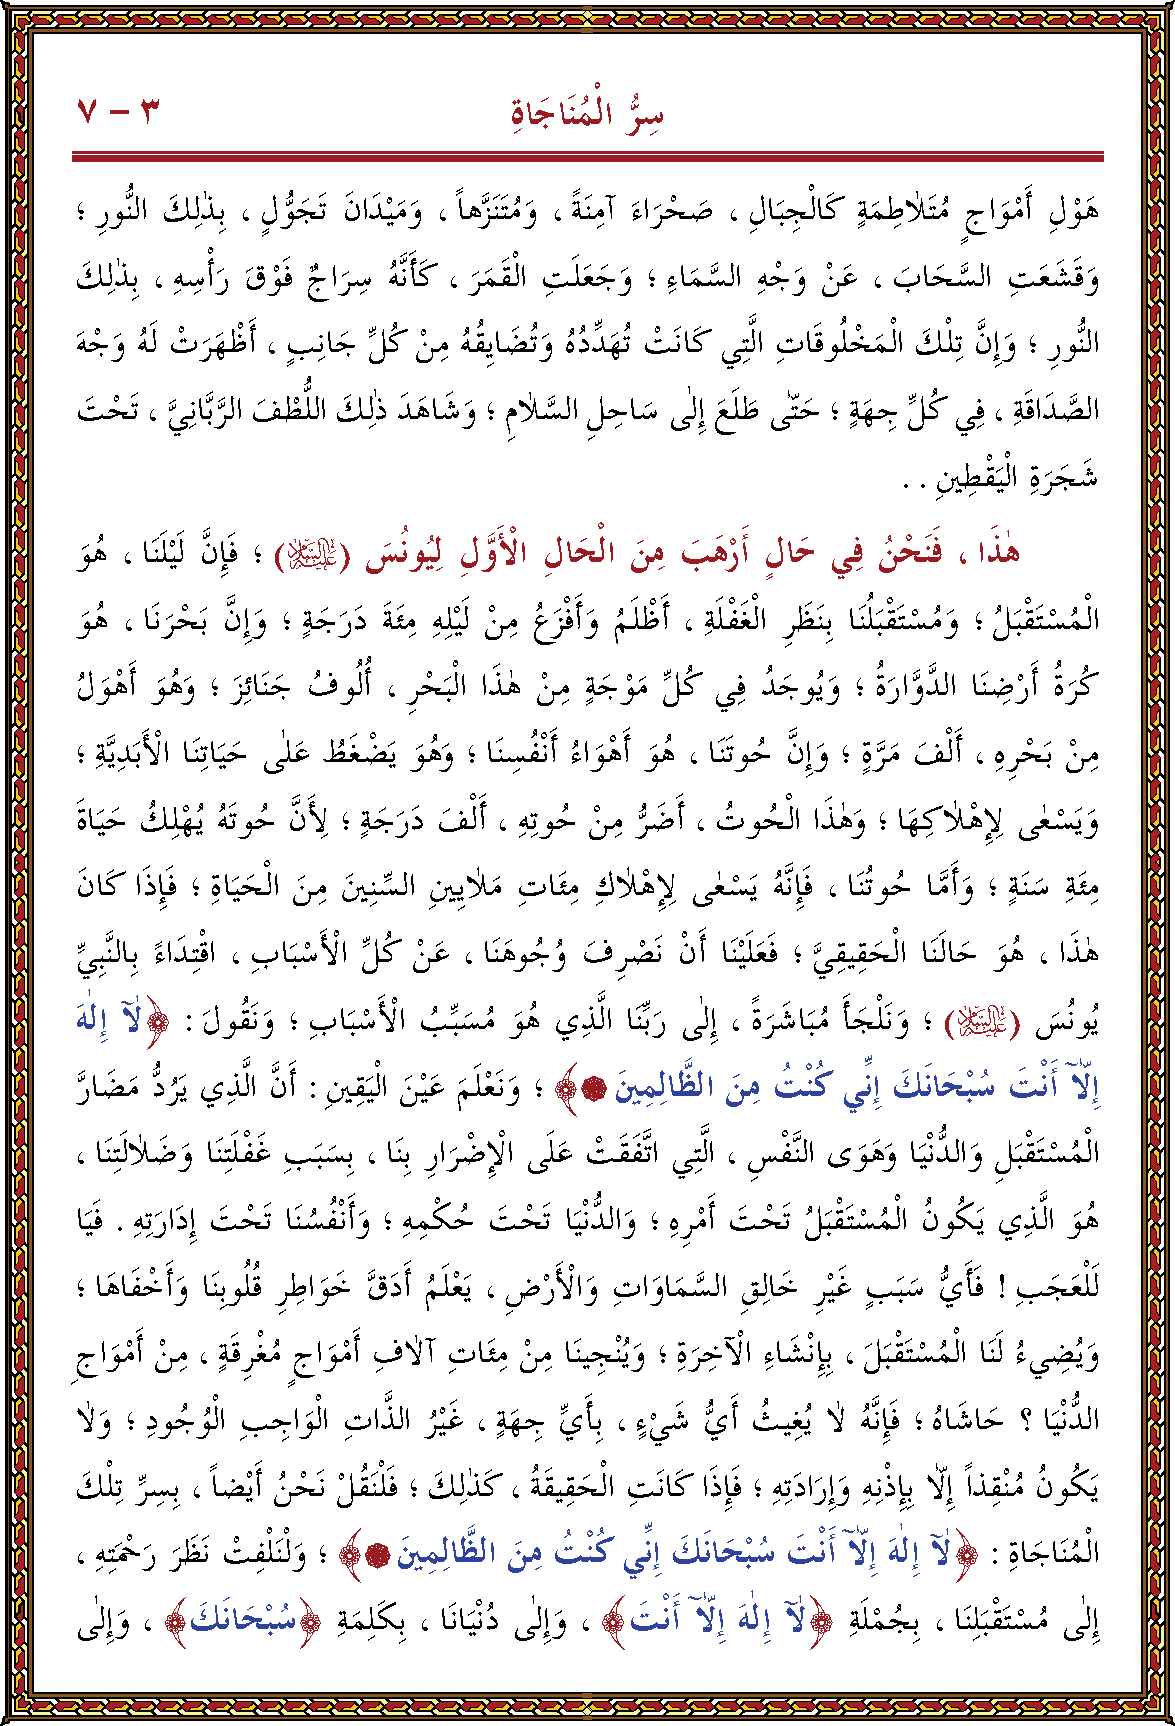 سِرُّ الْمُنَاجَاةِ ٣ – ٧
هَوْلِ أَمْوَاجٍ مُتَلَاطِمَةٍ كَالْجِبَالِ ، صَحْرَاءَ آمِنَةً ، وَمُتَنَزَّهاً ، وَمَيْدَانَ تَجَوُّلٍ ، بِذٰلِكَ النُّورِ ؛
وَقَشَعَتِ السَّحَابَ ، عَنْ وَجْهِ السَّمَاءِ ؛ وَجَعَلَتِ الْقَمَرَ ، كَأَنَّهُ سِرَاجٌ فَوْقَ رَأْسِهِ ، بِذٰلِكَ
النُّورِ ؛ وَإِنَّ تِلْكَ الْمَخْلُوقَاتِ الَّتِي كَانَتْ تُهَدِّدُهُ وَتُضَايِقُهُ مِنْ كُلِّ جَانِبٍ ، أَظْهَرَتْ لَهُ وَجْهَ
الصَّدَاقَةِ ، فِي كُلِّ جِهَةٍ ؛ حَتّٰى طَلَعَ إِلٰى سَاحِلِ السَّلَامِ ؛ وَشَاهَدَ ذٰلِكَ اللُّطْفَ الرَّبَّانِيَّ ، تَحْتَ
شَجَرَةِ الْيَقْطِينِ . .
هٰذَا ، فَنَحْنُ فِي حَالٍ أَرْهَبَ مِنَ الْحَالِ الْأَوَّلِ لِيُونُسَ (عَلَيْهِ السَّلَامُ) ؛ فَإِنَّ لَيْلَنَا ، هُوَ
الْمُسْتَقْبَلُ ؛ وَمُسْتَقْبَلُنَا بِنَظَرِ الْغَفْلَةِ ، أَظْلَمُ وَأَفْزَعُ مِنْ لَيْلِهِ مِئَةَ دَرَجَةٍ ؛ وَإِنَّ بَحْرَنَا ، هُوَ
كُرَةُ أَرْضِنَا الدَّوَّارَةُ ؛ وَيُوجَدُ فِي كُلِّ مَوْجَةٍ مِنْ هٰذَا الْبَحْرِ ، أُلُوفُ جَنَائِزَ ؛ وَهُوَ أَهْوَلُ
مِنْ بَحْرِهِ ، أَلْفَ مَرَّةٍ ؛ وَإِنَّ حُوتَنَا ، هُوَ أَهْوَاءُ أَنْفُسِنَا ؛ وَهُوَ يَضْغَطُ عَلٰى حَيَاتِنَا الْأَبَدِيَّةِ ؛
وَيَسْعٰى لِإِهْلَاكِهَا ؛ وَهٰذَا الْحُوتُ ، أَضَرُّ مِنْ حُوتِهِ ، أَلْفَ دَرَجَةٍ ؛ لِأَنَّ حُوتَهُ يُهْلِكُ حَيَاةَ
مِئَةِ سَنَةٍ ؛ وَأَمَّا حُوتُنَا ، فَإِنَّهُ يَسْعٰى لِإِهْلَاكِ مِئَاتِ مَلَايِينِ السِّنِينَ مِنَ الْحَيَاةِ ؛ فَإِذَا كَانَ
هٰذَا ، هُوَ حَالَنَا الْحَقِيقِيَّ ؛ فَعَلَيْنَا أَنْ نَصْرِفَ وُجُوهَنَا ، عَنْ كُلِّ الْأَسْبَابِ ، اقْتِدَاءً بِالنَّبِيِّ
يُونُسَ (عَلَيْهِ السَّلَامُ) ؛ وَنَلْجَأَ مُبَاشَرَةً ، إِلٰى رَبِّنَا الَّذِي هُوَ مُسَبِّبُ الْأَسْبَابِ ؛ وَنَقُولَ : ﴿لَآ إِلٰهَ
إِلَّآ أَنْتَ سُبْحَانَكَ إِنِّي كُنْتُ مِنَ الظَّالِمِينَ﴾ ؛ وَنَعْلَمَ عَيْنَ الْيَقِينِ : أَنَّ الَّذِي يَرُدُّ مَضَارَّ
الْمُسْتَقْبَلِ وَالدُّنْيَا وَهَوَى النَّفْسِ ، الَّتِي اتَّفَقَتْ عَلَى الْإِضْرَارِ بِنَا ، بِسَبَبِ غَفْلَتِنَا وَضَلَالَتِنَا ،
هُوَ الَّذِي يَكُونُ الْمُسْتَقْبَلُ تَحْتَ أَمْرِهِ ؛ وَالدُّنْيَا تَحْتَ حُكْمِهِ ؛ وَأَنْفُسُنَا تَحْتَ إِدَارَتِهِ . فَيَا
لَلْعَجَبِ ! فَأَيُّ سَبَبٍ غَيْرِ خَالِقِ السَّمَاوَاتِ وَالْأَرْضِ ، يَعْلَمُ أَدَقَّ خَوَاطِرِ قُلُوبِنَا وَأَخْفَاهَا ؛
وَيُضِيءُ لَنَا الْمُسْتَقْبَلَ ، بِإِنْشَاءِ الْآخِرَةِ ؛ وَيُنْجِينَا مِنْ مِئَاتِ آلَافِ أَمْوَاجٍ مُغْرِقَةٍ ، مِنْ أَمْوَاجِ
الدُّنْيَا ؟ حَاشَاهُ ؛ فَإِنَّهُ لَا يُغِيثُ أَيُّ شَيْءٍ ، بِأَيِّ جِهَةٍ ، غَيْرُ الذَّاتِ الْوَاجِبِ الْوُجُودِ ؛ وَلَا
يَكُونُ مُنْقِذاً إِلَّا بِإِذْنِهِ وَإِرَادَتِهِ ؛ فَإِذَا كَانَتِ الْحَقِيقَةُ ، كَذٰلِكَ ؛ فَلْنَقُلْ نَحْنُ أَيْضاً ، بِسِرِّ تِلْكَ
الْمُنَاجَاةِ : ﴿لَآ إِلٰهَ إِلَّآ أَنْتَ سُبْحَانَكَ إِنِّي كُنْتُ مِنَ الظَّالِمِينَ﴾ ؛ وَلْنَلْفِتْ نَظَرَ رَحْمَتِهِ ،
إِلٰى مُسْتَقْبَلِنَا ، بِجُمْلَةِ ﴿لَآ إِلٰهَ إِلَّآ أَنْتَ﴾ ، وَإِلٰى دُنْيَانَا ، بِكَلِمَةِ ﴿سُبْحَانَكَ﴾ ، وَإِلٰى